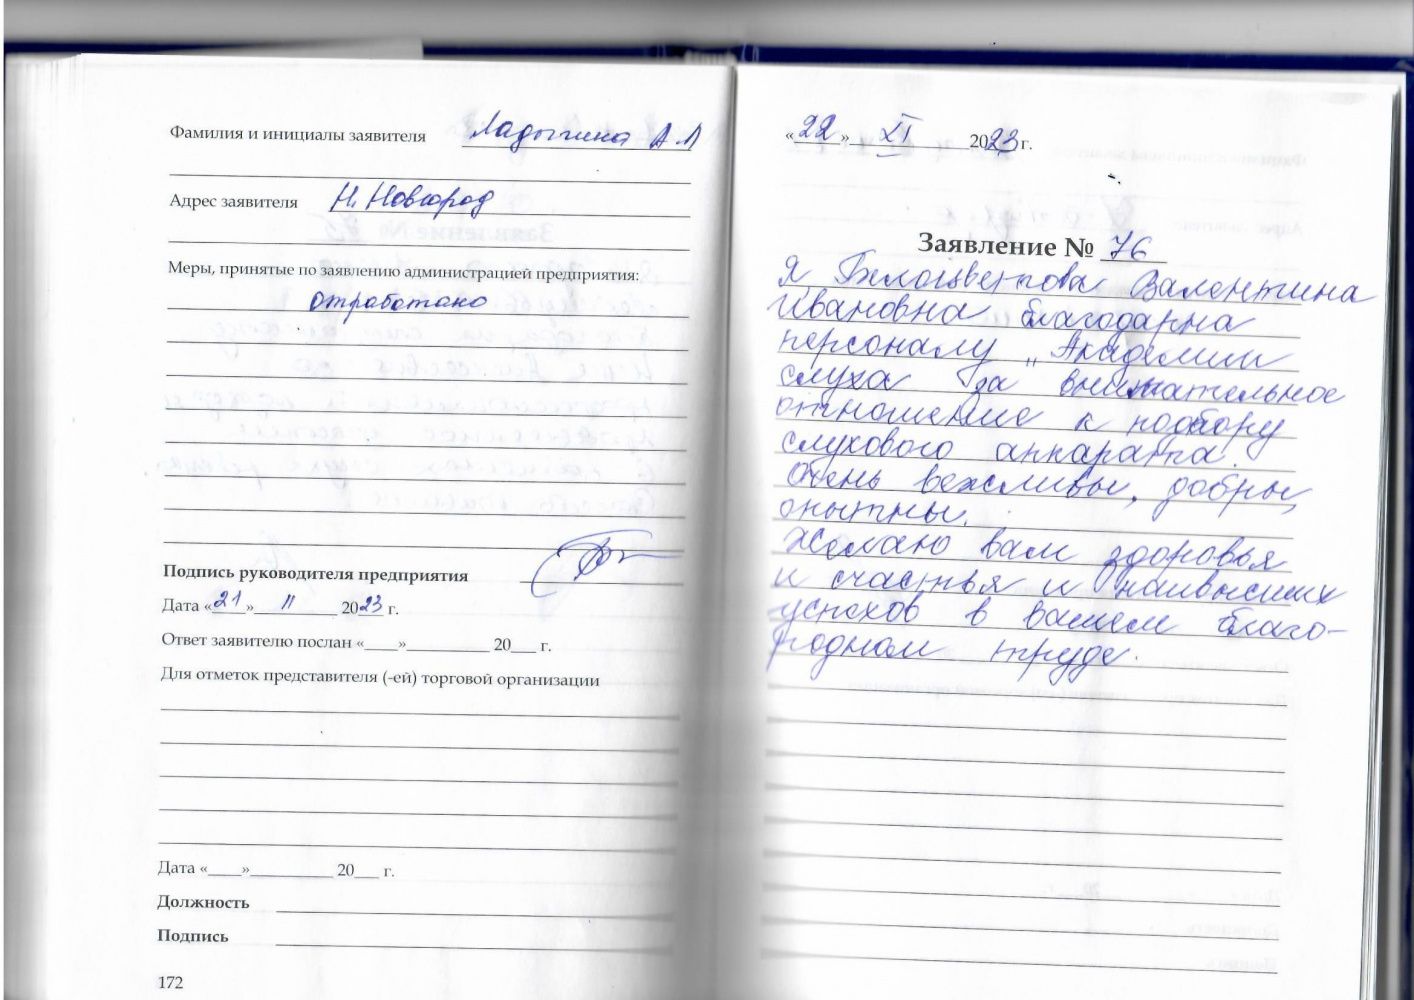 Фамилия и инициалы заявителя Ладыгина А Л
Адрес заявителя Н. Новгород
Меры, принятые по заявлению администрацией предприятия:
отработано
Подпись руководителя предприятия
Дата «21» 11 2023 г.
Ответ заявителю послан «____»__________ 20___ г.
Для отметок представителя (-ей) торговой организации
Дата «____»__________ 20___ г.
Должность
Подпись
172
«22» XI 2023 г.
Заявление № 76
Я Белоцветова Валентина
Ивановна благодарна
персоналу „Академии
слуха за внимательное
отношение к подбору
слухового аппарата.
Очень вежливы, добры,
опытны.
Желаю вам здоровья
и счастья и наивысших
успехов в вашем благо-
родном труде.